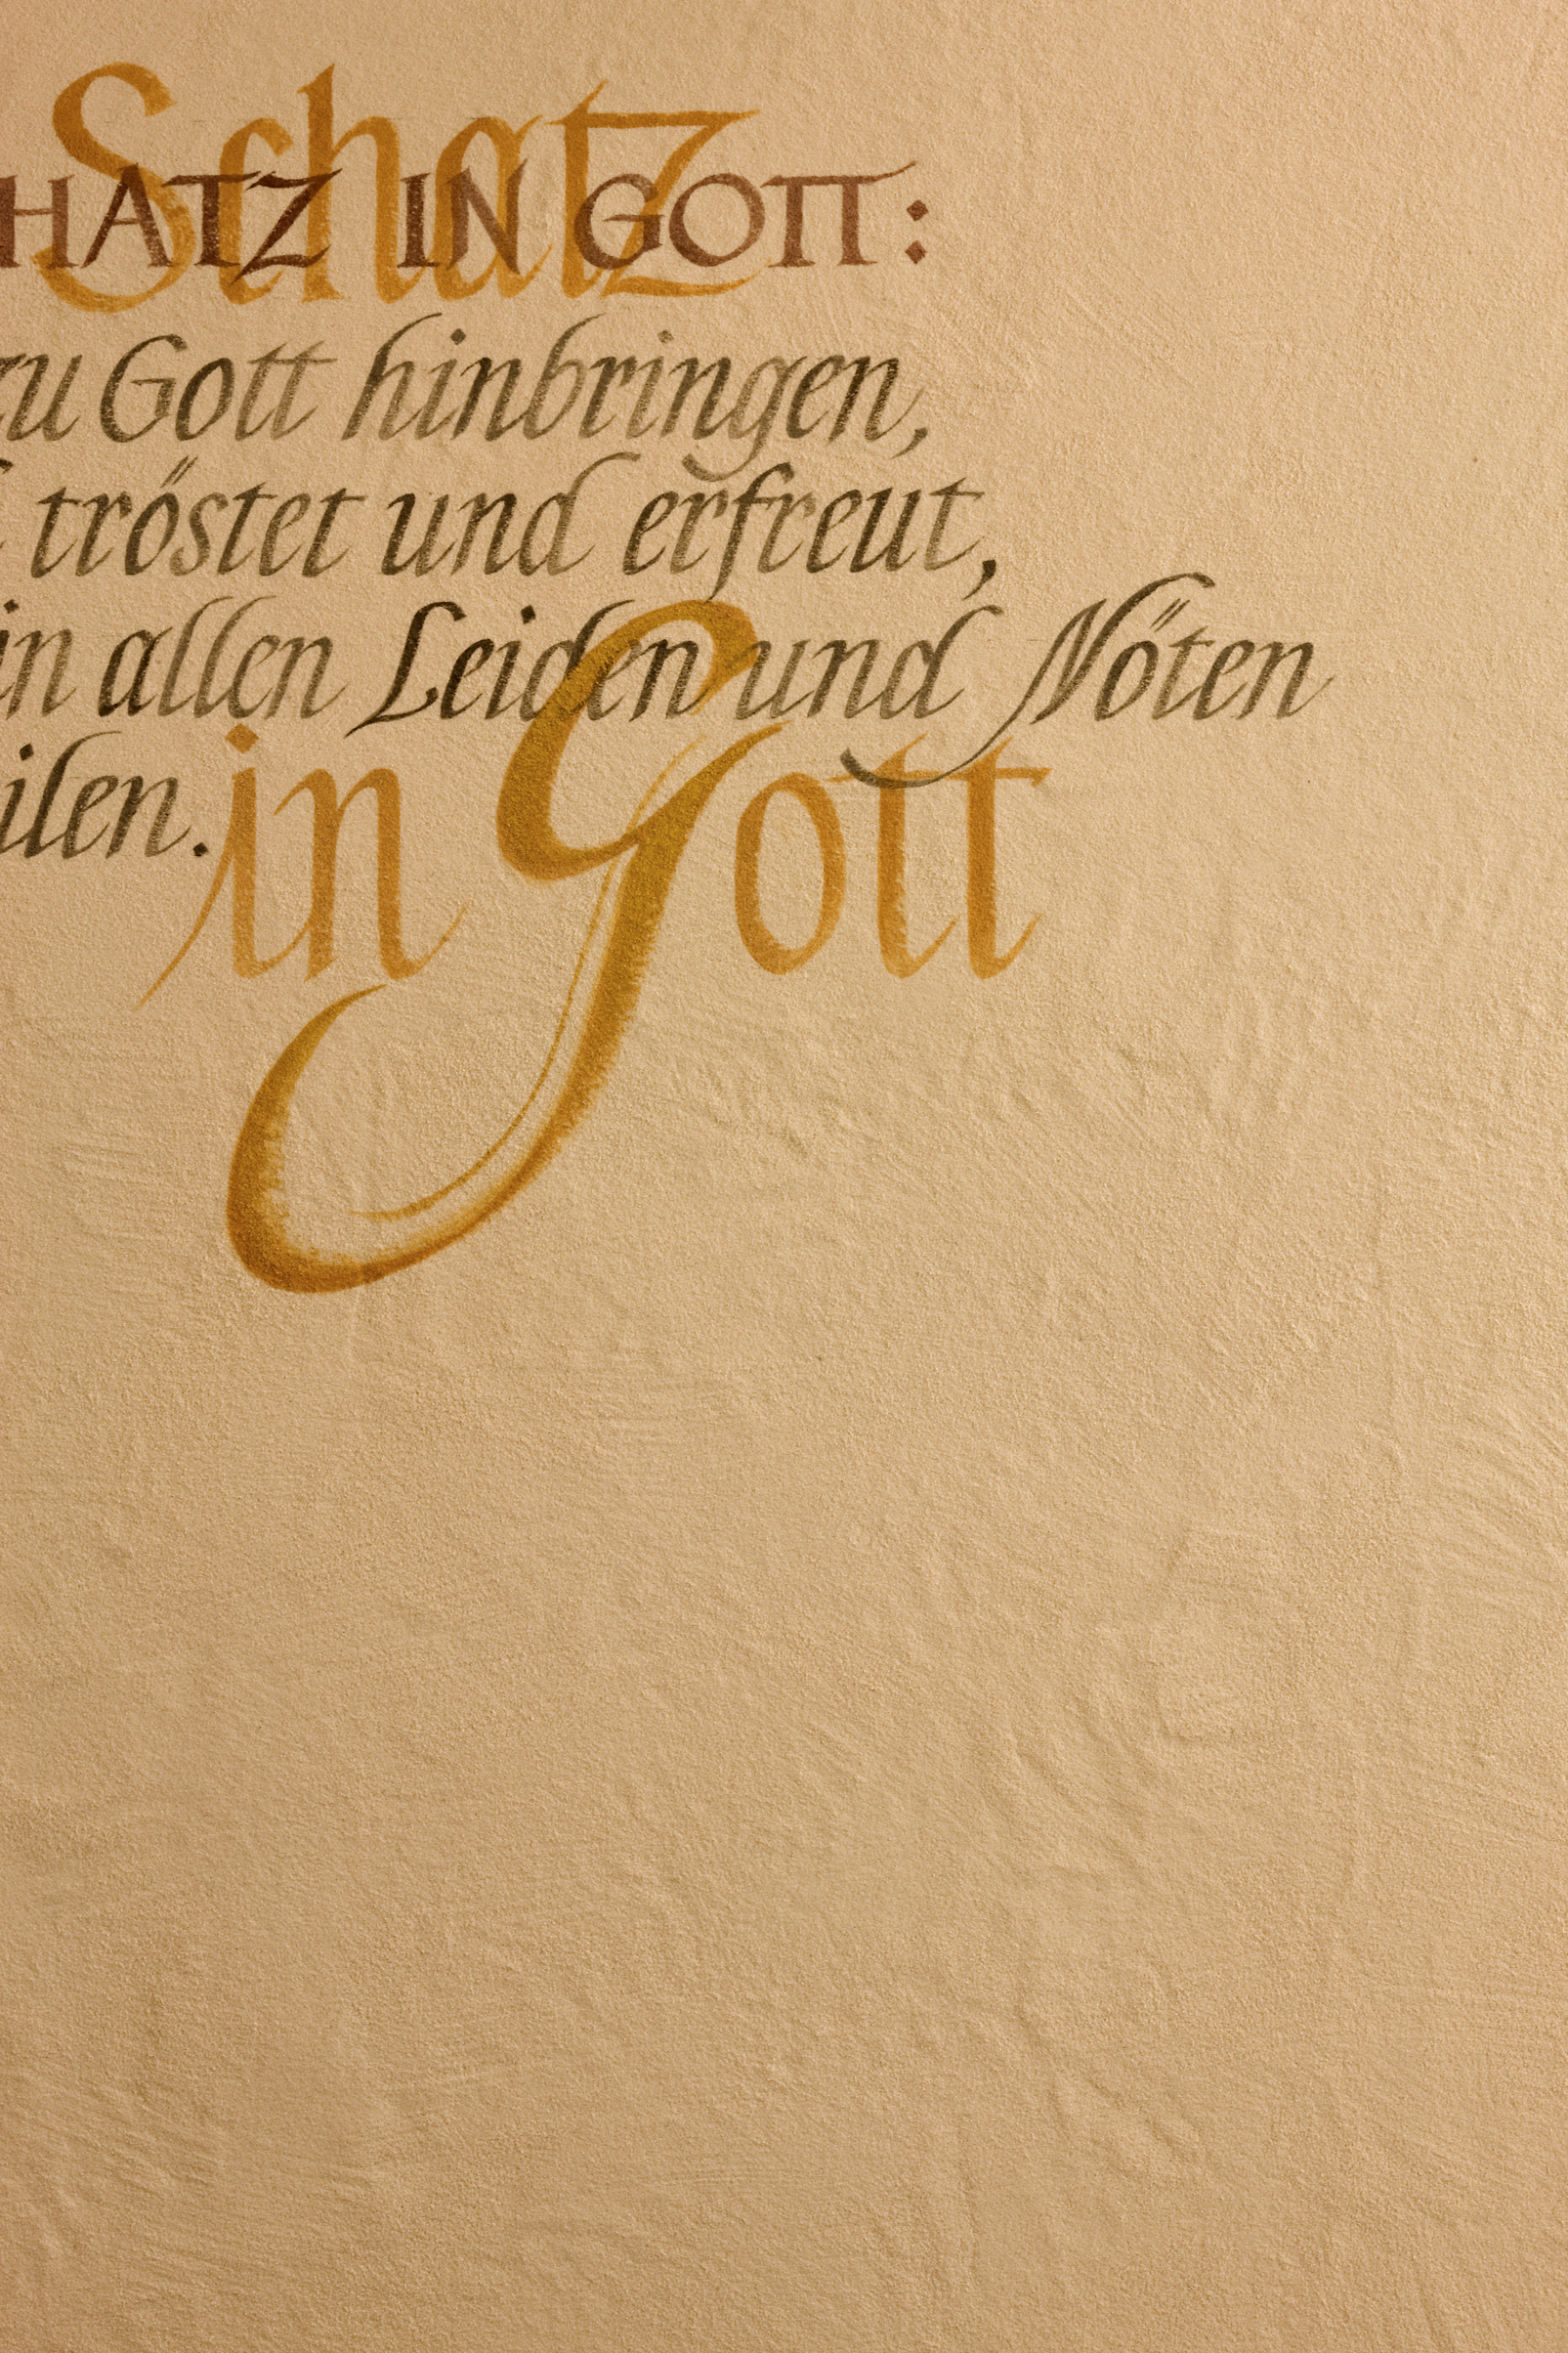 Schatz
HATZ IN GOTT:
zu Gott hinbringen,
tröstet und erfreut,
in allen Leiden und Nöten
ilen.
in Gott